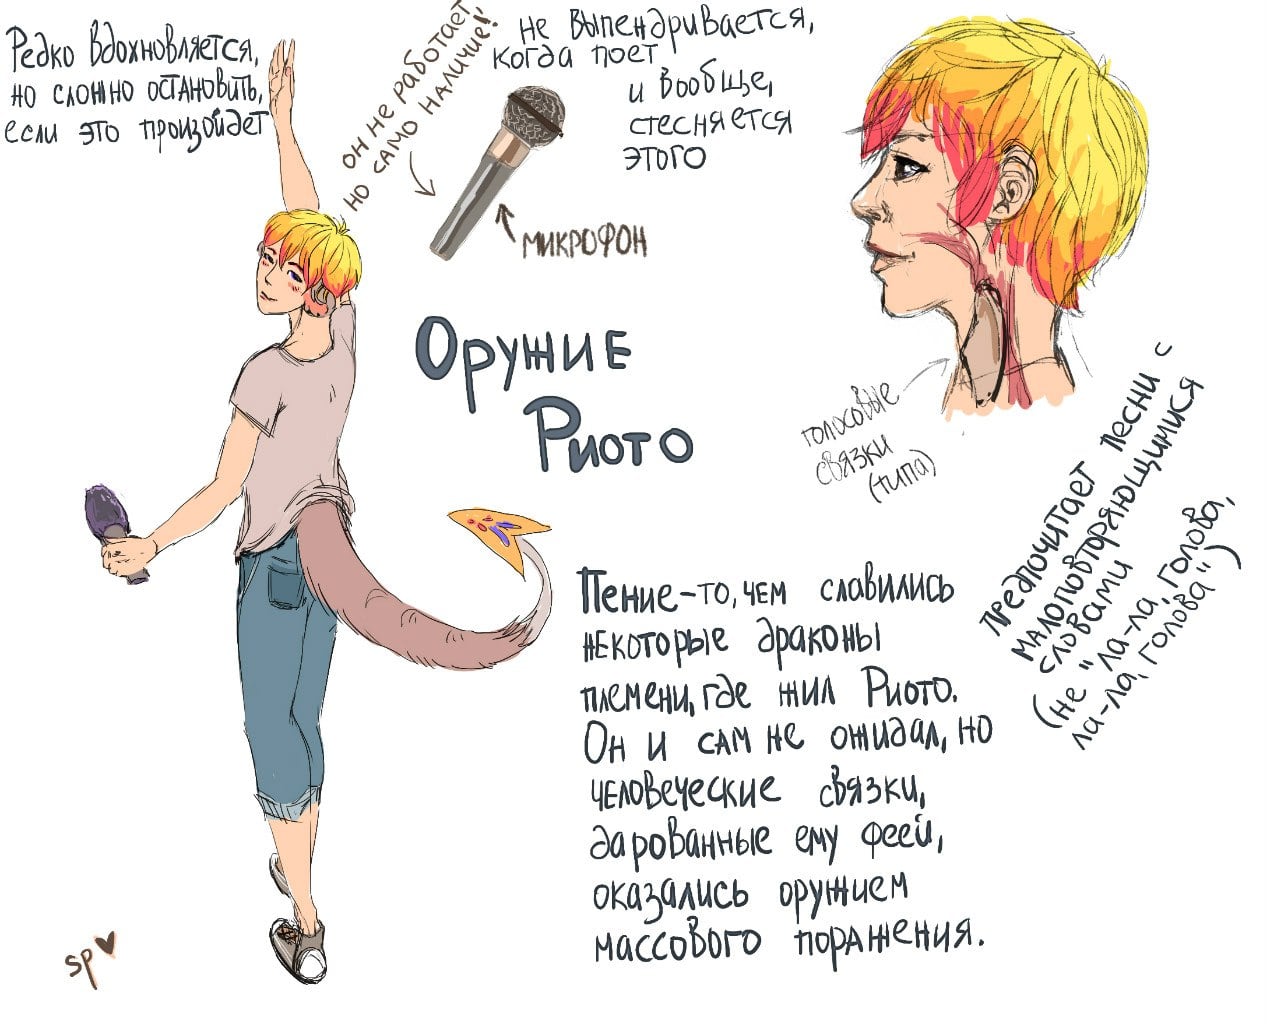 Редко вдохновляется,
но сложно остановить,
если это произойдет
он не работает,
но само наличие!!
не выпендривается,
когда поет
и вообще,
стесняется
этого
микрофон
Оружие
Риото
голосовые
связки
(типа)
предпочитает песни с
малоповторяющимися
словами
(не "ла-ла, голова,
ла-ла, голова")
Пение-то, чем славились
некоторые драконы
племени, где жил Риото.
Он и сам не ожидал, но
человеческие связки,
дарованные ему феей,
оказались оружием
массового поражения.
sp